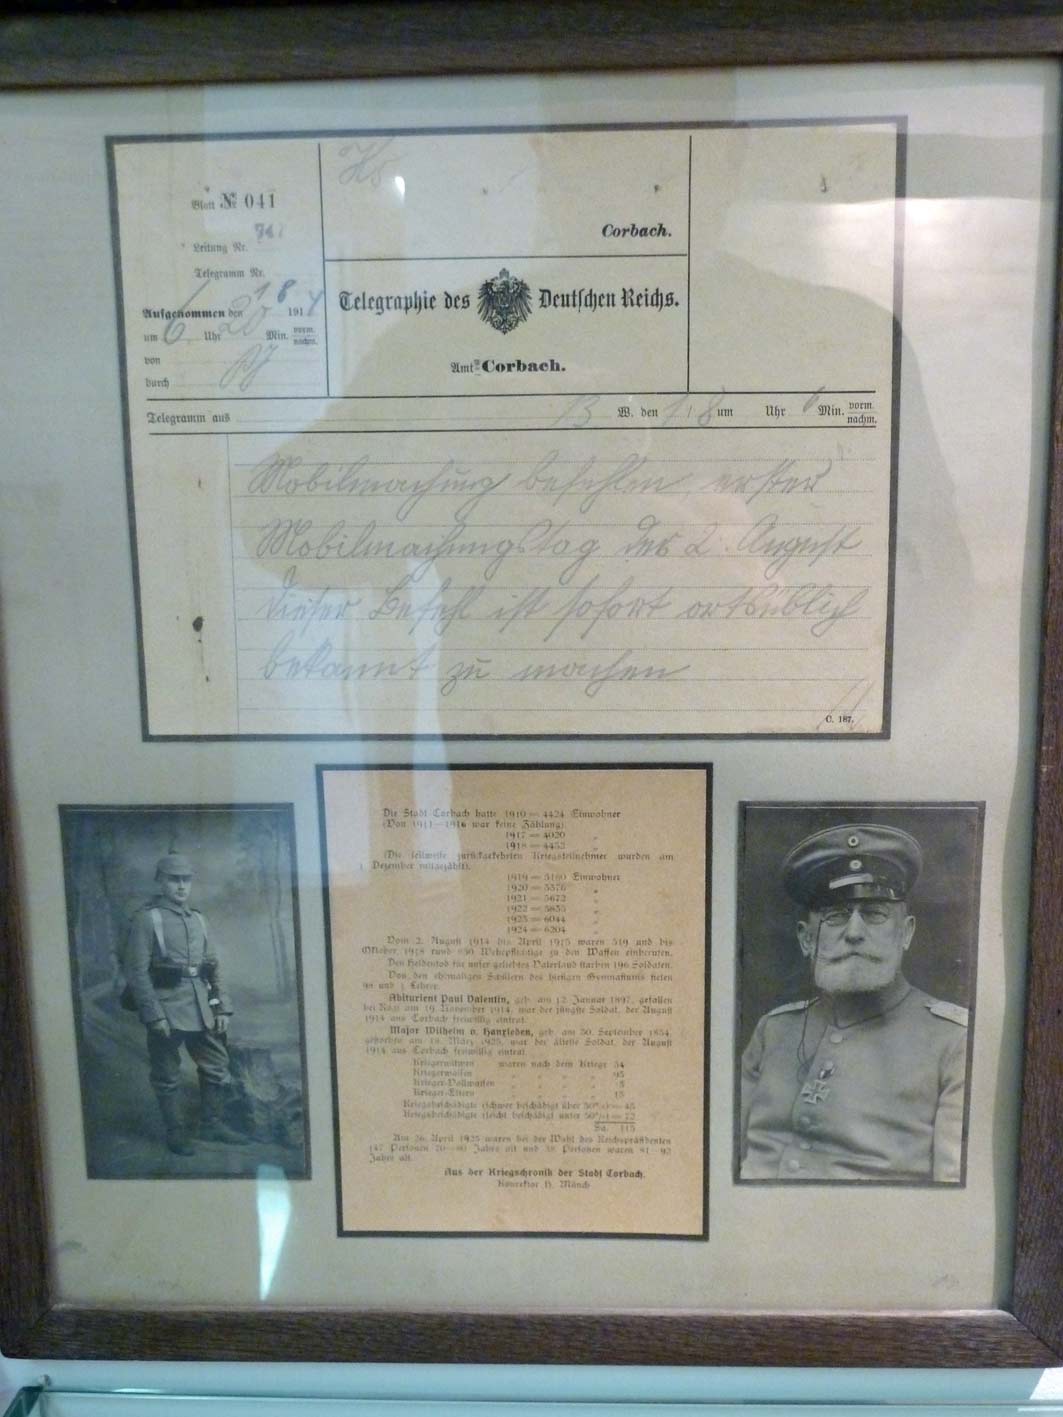 Blatt № 041
Leitung Nr.
Corbach.
Telegramm Nr.
Aufgenommen den 1 8 191
Telegraphie des Deutschen Reichs.
um 6 Uhr 20 Min. vorm. nachm.
von
Amt Corbach.
durch
Telegramm aus W. den 1/8 um Uhr 6 Min. vorm. nachm.
Mobilmachung befohlen, erster
Mobilmachungstag der 2. August
dieser Befehl ist sofort ortsüblich
bekannt zu machen
C. 187.
Die Stadt Corbach hatte 1910 = 4424 Einwohner
(Von 1911—1916 war keine Zählung).
1917 = 4020 „
1918 = 4452 „
(Die teilweise zurückgekehrten Kriegsteilnehmer wurden am
1. Dezember mitgezählt).
1919 = 5160 Einwohner
1920 = 5576 „
1921 = 5672 „
1922 = 5855 „
1923 = 6044 „
1924 = 6204 „
Vom 2. August 1914 bis April 1915 waren 519 und bis
Oktober 1918 rund 950 Wehrpflichtige zu den Waffen einberufen.
Den Heldentod für unser geliebtes Vaterland starben 196 Soldaten.
Von den ehemaligen Schülern des hiesigen Gymnasiums fielen
98 und 1 Lehrer.
Abiturient Paul Valentin, geb. am 12. Januar 1897, gefallen
bei am 19. November 1914, war der jüngste Soldat, der August
1914 aus Corbach freiwillig eintrat.
Major Wilhelm v. Hanxleden, geb. am 30. September 1854,
gestorben am 18. März 1925, war der älteste Soldat, der August
1914 aus Corbach freiwillig eintrat.
Kriegerwitwen waren nach dem Kriege 54
Kriegerwaisen „ „ „ „ 95
Krieger-Vollwaisen „ „ „ „ 5
Krieger-Eltern „ „ „ „ 15
Kriegsbeschädigte (schwer beschädigt über 50%) = 45
Kriegsbeschädigte (leicht beschädigt unter 50%) = 72
Sa. 115
Am 26. April 1925 waren bei der Wahl des Reichspräsidenten
147 Personen 70—80 Jahre alt und 38 Personen waren 81—92
Jahre alt.
Aus der Kriegschronik der Stadt Corbach.
Konrektor H. Münch